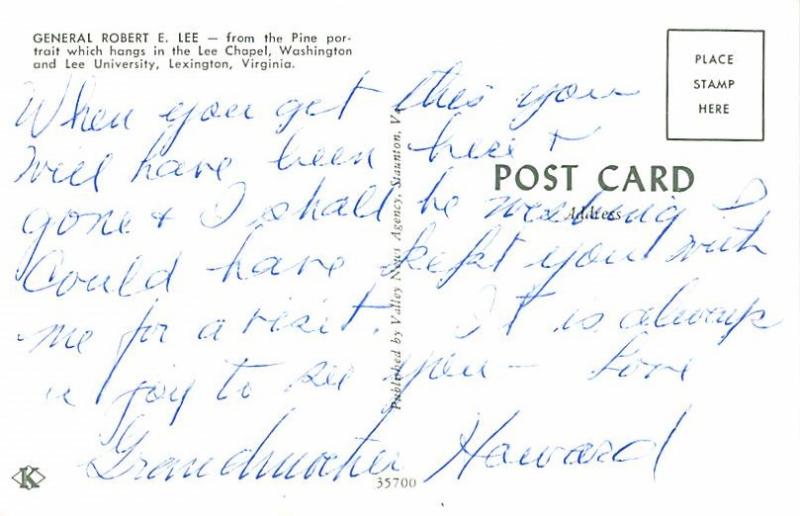 GENERAL ROBERT E. LEE — from the Pine por-
trait which hangs in the Lee Chapel, Washington
and Lee University, Lexington, Virginia.
PLACE
STAMP
HERE
POST CARD
Address
Published by Valley News Agency, Staunton, V
When you get this you
will have been here +
gone + I shall be wishing I
Could have kept you with
me for a visit. It is always
a joy to see you — Love
Grandmother Howard
K
35700